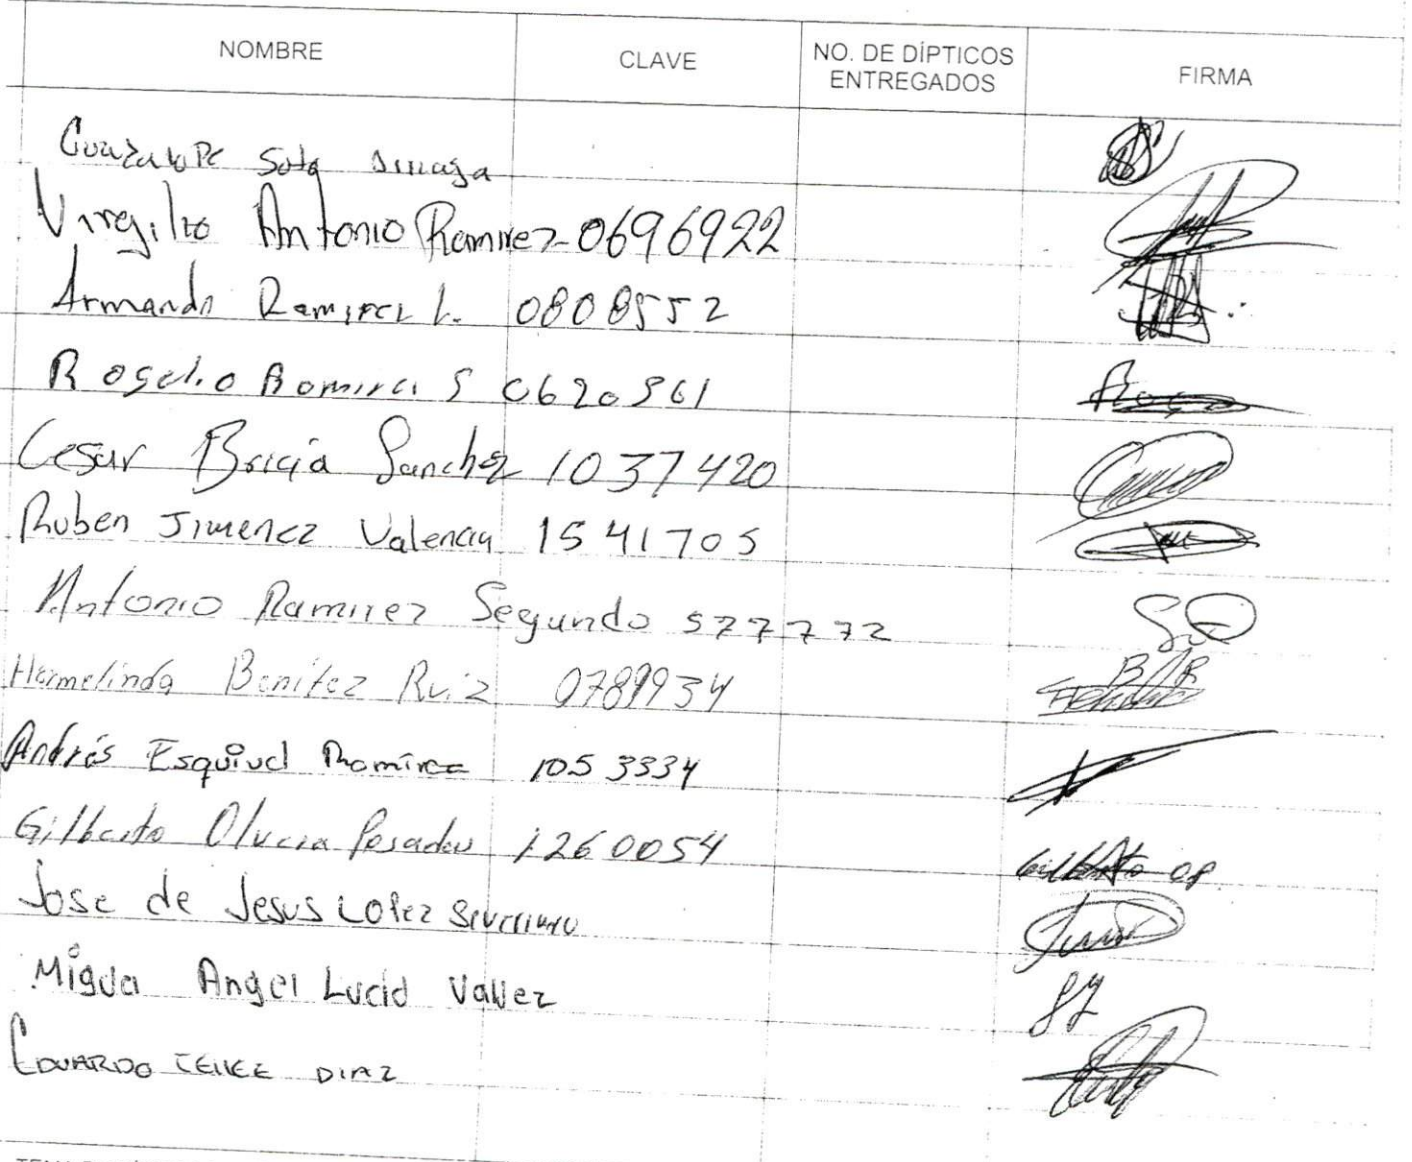 NOMBRE CLAVE NO. DE DÍPTICOS ENTREGADOS FIRMA
Soto
Virgilio Antonio Ramirez 0696922
Armando Ramirez L. 0808552
Rogelio Ramirez S 0620361
Cesar Bricia Sanchez 1037420
Ruben Jimenez Valencia 1541705
Antonio Ramirez Segundo 577772
Hermelinda Benitez Ruiz 0789934
Andrés Esquivel Ramírez 1053334
Gilberto Olvera Posadas 1260054 Gilberto OP
Jose de Jesus Lopez Severiano
Miguel Angel Lucio Valdez
EDUARDO TELLEZ DIAZ